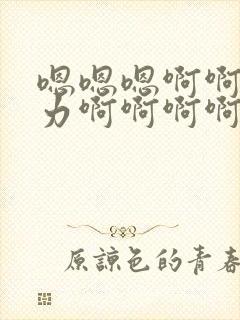 嗯嗯嗯啊啊
力啊啊啊啊
原諒色的青春